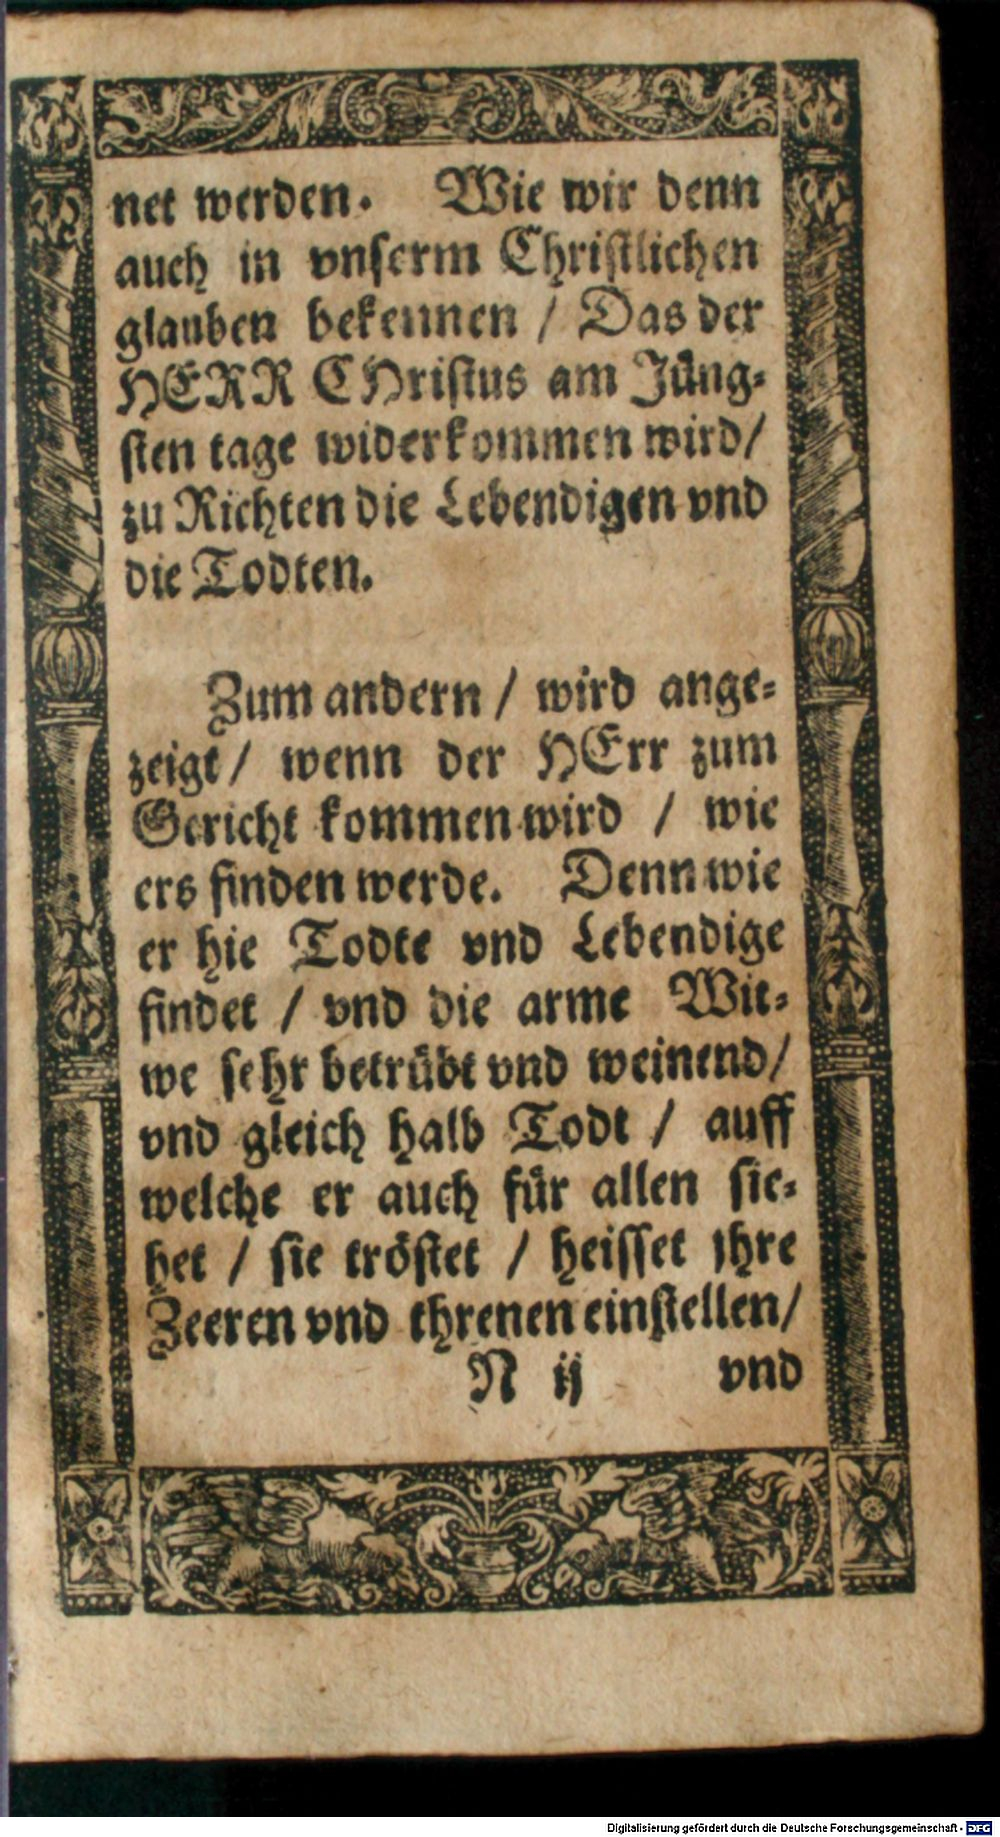 net werden. Wie wir denn
auch in vnserm Christlichen
glauben bekennen / Das der
HERR CHristus am Jüng-
sten tage widerkommen wird/
zu Richten die Lebendigen vnd
die Todten.
Zum andern / wird ange-
zeigt / wenn der HErr zum
Gericht kommen wird / wie
ers finden werde. Denn wie
er hie Todte vnd Lebendige
findet / vnd die arme Wit-
we sehr betrübt vnd weinend/
vnd gleich halb Todt / auff
welche er auch für allen sie-
het / sie tröstet / heisset jhre
Zeeren vnd threnen einstellen/
N ij vnd
Digitalisierung gefördert durch die Deutsche Forschungsgemeinschaft - DFG